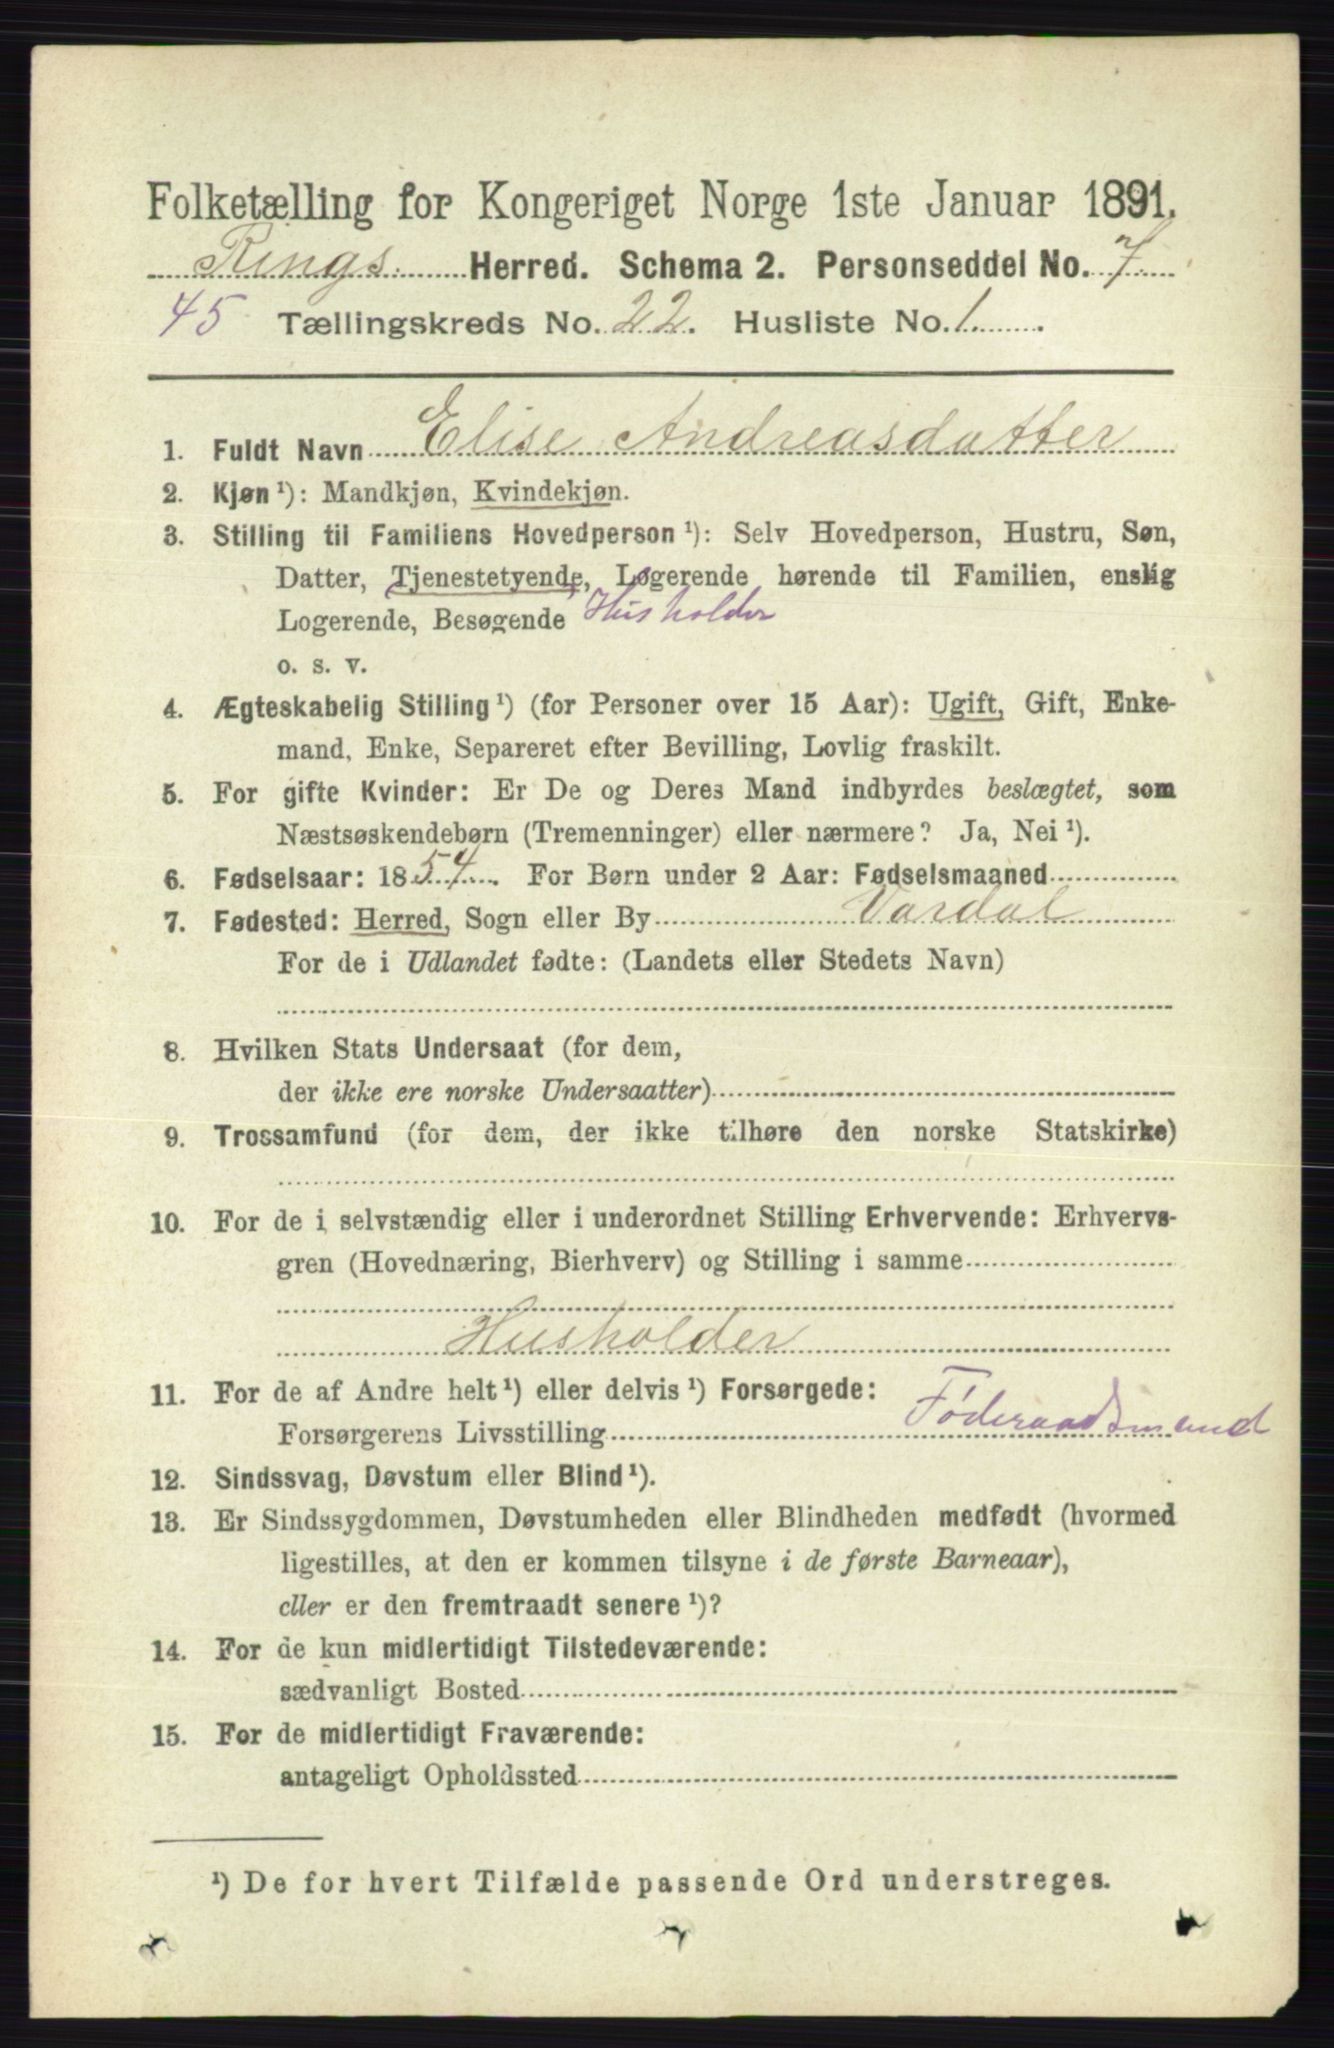 Folketælling for Kongeriget Norge 1ste Januar 1891.
Rings Herred. Schema 2. Personseddel No. 7
45 Tællingskreds No. 22. Husliste No. 1
1. Fuldt Navn Elise Andreasdatter
2. Kjøn ¹): Mandkjøn, Kvindekjøn.
3. Stilling til Familiens Hovedperson ¹): Selv Hovedperson, Hustru, Søn,
Datter, Tjenestetyende, Løgerende hørende til Familien, enslig
Logerende, Besøgende Husholder
o. s. v.
4. Ægteskabelig Stilling ¹) (for Personer over 15 Aar): Ugift, Gift, Enke-
mand, Enke, Separeret efter Bevilling, Lovlig fraskilt.
5. For gifte Kvinder: Er De og Deres Mand indbyrdes beslægtet, som
Næstsøskendebørn (Tremenninger) eller nærmere? Ja, Nei ¹).
6. Fødselsaar: 1854. For Børn under 2 Aar: Fødselsmaaned
7. Fødested: Herred, Sogn eller By Vardal
For de i Udlandet fødte: (Landets eller Stedets Navn)
8. Hvilken Stats Undersaat (for dem,
der ikke ere norske Undersaatter)
9. Trossamfund (for dem, der ikke tilhøre den norske Statskirke)
10. For de i selvstændig eller i underordnet Stilling Erhvervende: Erhvervs-
gren (Hovednæring, Bierhverv) og Stilling i samme
Husholder
11. For de af Andre helt ¹) eller delvis ¹) Forsørgede:
Forsørgerens Livsstilling Føderaadsmand
12. Sindssvag, Døvstum eller Blind ¹).
13. Er Sindssygdommen, Døvstumheden eller Blindheden medfødt (hvormed
ligestilles, at den er kommen tilsyne i de første Barneaar),
eller er den fremtraadt senere ¹)?
14. For de kun midlertidigt Tilstedeværende:
sædvanligt Bosted
15. For de midlertidigt Fraværende:
antageligt Opholdssted
¹) De for hvert Tilfælde passende Ord understreges.